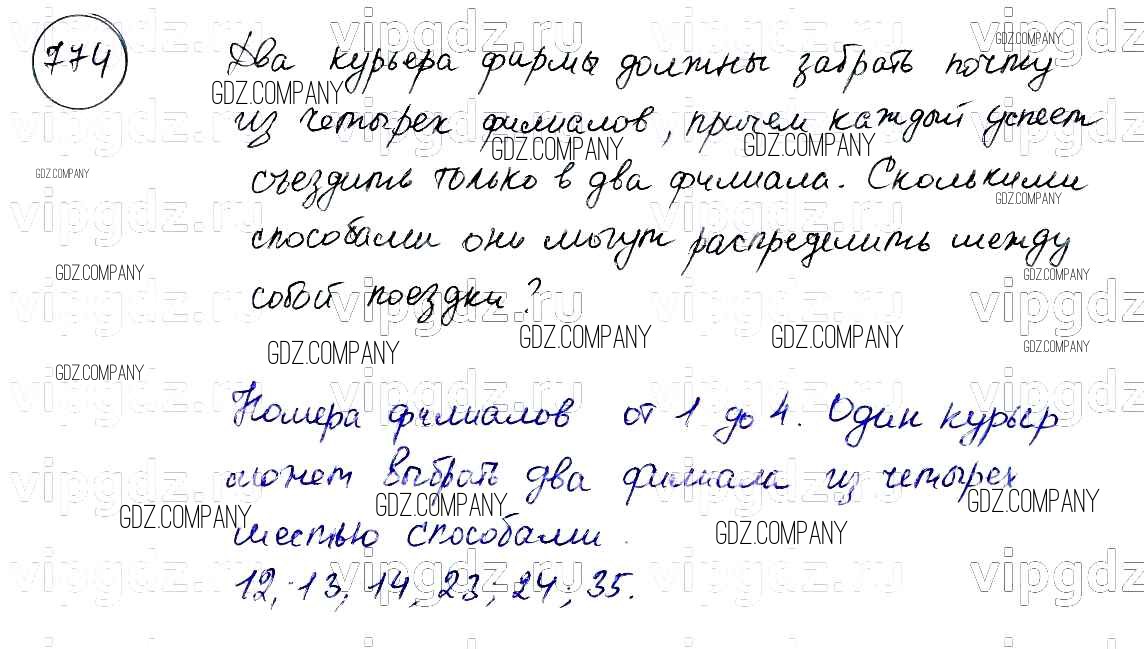 774
Два курьера фирмы должны забрать почту
из четырех филиалов, причем каждый успеет
съездить только в два филиала. Сколькими
способами они могут распределить между
собой поездки?
Номера филиалов от 1 до 4. Один курьер
может выбрать два филиала из четырех
шестью способами.
12, 13, 14, 23, 24, 35.
vipgdz.ru
GDZ.COMPANY